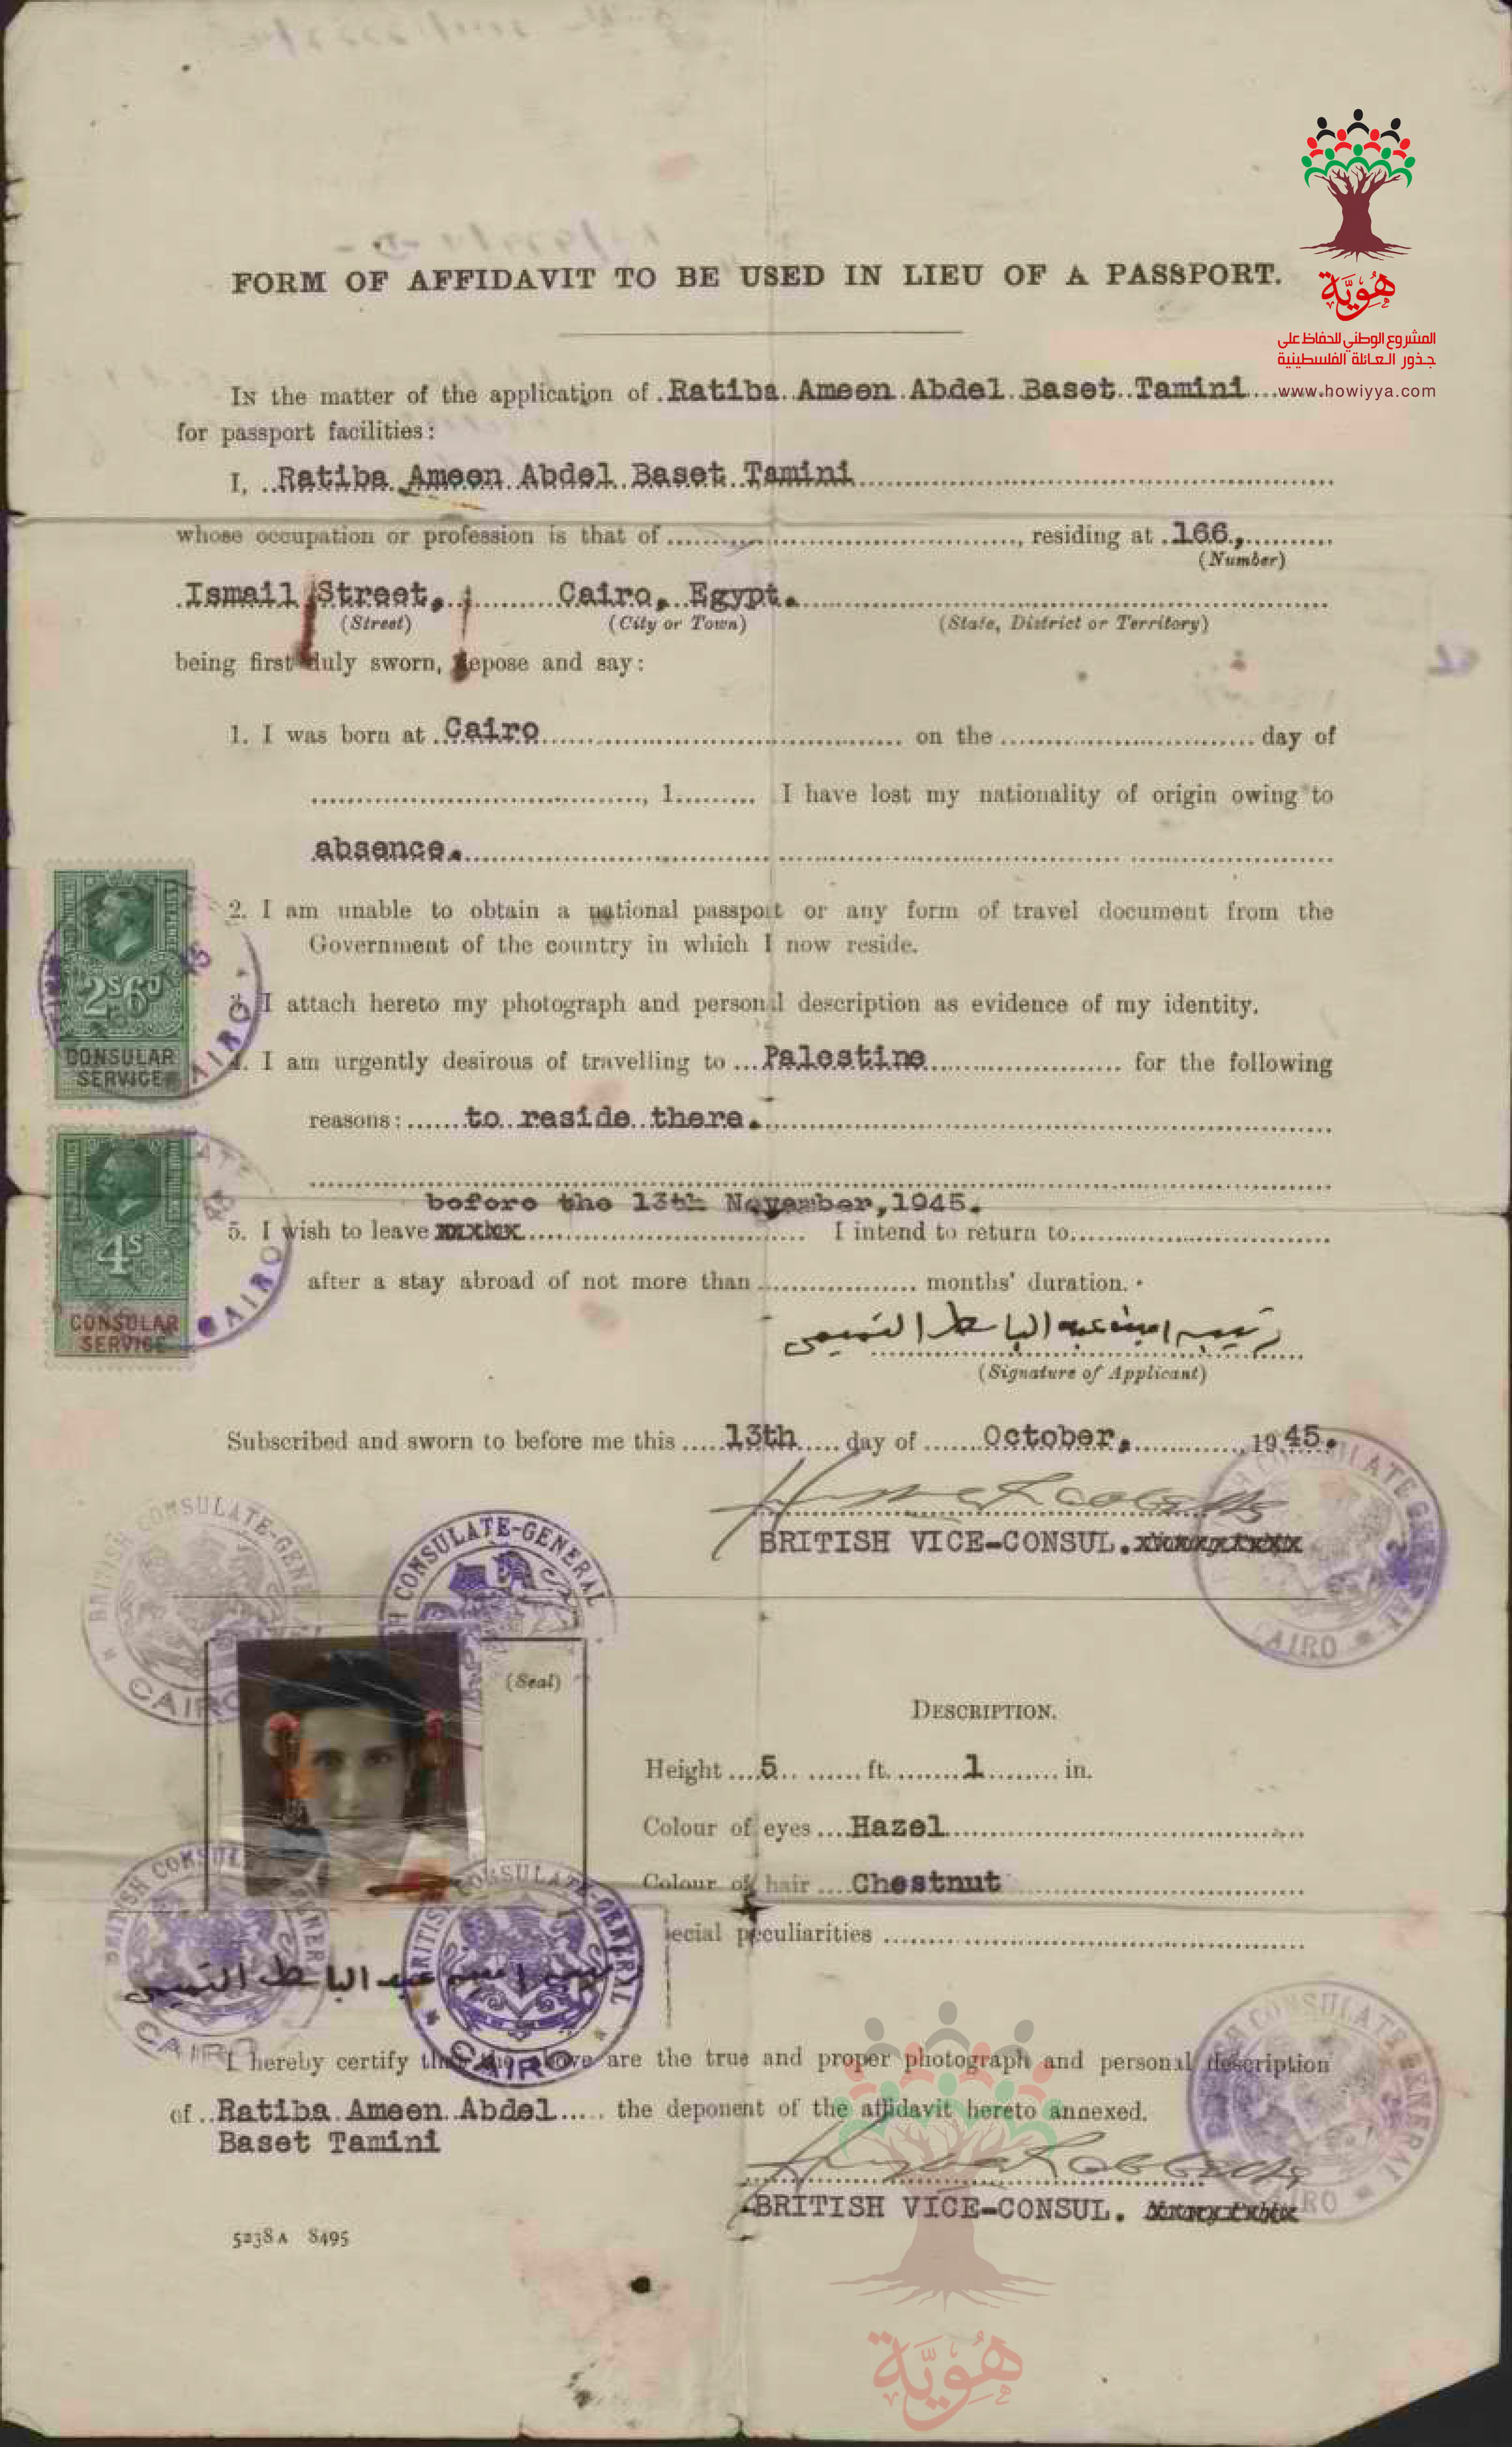 هوية
المشروع الوطني للحفاظ على
جذور العائلة الفلسطينية
www.howiyya.com
FORM OF AFFIDAVIT TO BE USED IN LIEU OF A PASSPORT.
IN the matter of the application of Ratiba Ameen Abdel Baset Tamini
for passport facilities:
I, Ratiba Ameen Abdel Baset Tamini
whose occupation or profession is that of ........, residing at 166,
(Number)
Ismail Street, Cairo, Egypt.
(Street) (City or Town) (State, District or Territory)
being first duly sworn, depose and say:
1. I was born at Cairo ........ on the ........ day of
........, 1........ I have lost my nationality of origin owing to
absence.
2. I am unable to obtain a national passport or any form of travel document from the
Government of the country in which I now reside.
3. I attach hereto my photograph and personal description as evidence of my identity.
4. I am urgently desirous of travelling to Palestine ........ for the following
reasons: to reside there.
before the 13th November, 1945.
5. I wish to leave ........ I intend to return to ........
after a stay abroad of not more than ........ months' duration.
رتيبه امينه عبد الباسط التميمي
(Signature of Applicant)
Subscribed and sworn to before me this 13th day of October, 1945.
BRITISH VICE-CONSUL.
2s6d
CONSULAR
SERVICE
CAIRO
4s
CONSULAR
SERVICE
CAIRO
BRITISH CONSULATE-GENERAL
CAIRO
BRITISH CONSULATE-GENERAL
BRITISH CONSULATE GENERAL
CAIRO
(Seal)
DESCRIPTION.
Height 5 ft. 1 in.
Colour of eyes Hazel
Colour of hair Chestnut
ecial peculiarities
BRITISH CONSULATE-GENERAL
CAIRO
BRITISH CONSULATE-GENERAL
CAIRO
عبد الباسط التميمي
I hereby certify that the above are the true and proper photograph and personal description
of Ratiba Ameen Abdel ..... the deponent of the affidavit hereto annexed.
Baset Tamini
BRITISH CONSULATE GENERAL
CAIRO
BRITISH VICE-CONSUL.
5238A 8495
هوية